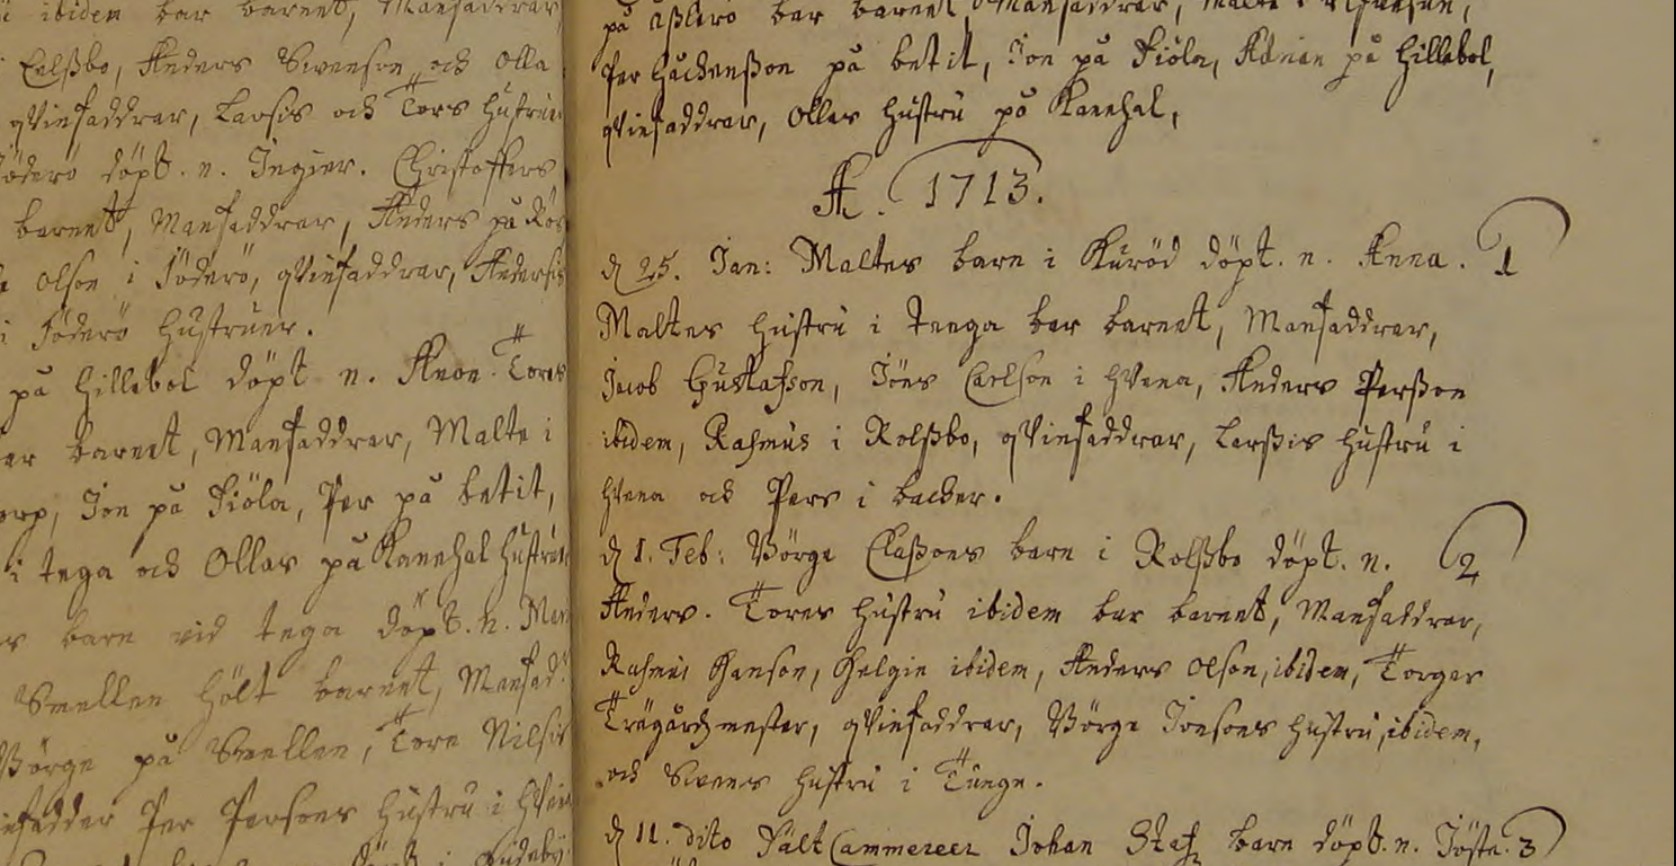 ibidem bar barnet, Manfaddrar,
Eelßbo, Anders Swenson och Olla
qvinfaddrar, Larsis och Tores hustruer
Föderö döpt. n. Ingier. Christoffers
barnet, Manfaddrar, Anders på Rös
Olson i Föderö, qvinfaddrar, Andersis
i Föderö hustruer.
på Hillebol döpt n. Anon. Tores
bar barnet, Manfaddrar, Malte i
Jon på Fiöla, Per på betit,
i tega och Ollas på Kanehal hustruer
barn vid tega döpt. n.
Smellen hölt barnet, Manfad.
Börge på Smellen, Tore Nilsis
Per Persons hustru i
på bar barnet, Manfaddrar, Malte
Per Håckenßon på betit, Jon på Fiöla, Adrian på Hillebol,
qvinfaddrar, Ollas hustru på Kanehal,
A. 1713.
d 25. Jan: Maltes barn i Kuröd döpt. n. Anna. 1
Maltes hustru i tenga bar barnet, Manfaddrar,
Jacob Gustafson, Jöns Carlson i Hvena, Anders Perßon
ibidem, Rasmus i Rolßbo, qvinfaddrar, Larßis hustru i
Hvena och Pers i backer.
d 1. Feb: Börge Claßons barn i Rolßbo döpt. n. 2
Anders. Tores hustru ibidem bar barnet, Manfaddrar,
Rasmus Hanson, Helgie ibidem, Anders Olson, ibidem, Torger
Trägårdzmester, qvinfaddrar, Börge Jonsons hustru, ibidem,
och Swens hustru i Tunge.
d 11. dito Fält Cammereer Johan barn döpt. n. Jösta. 3